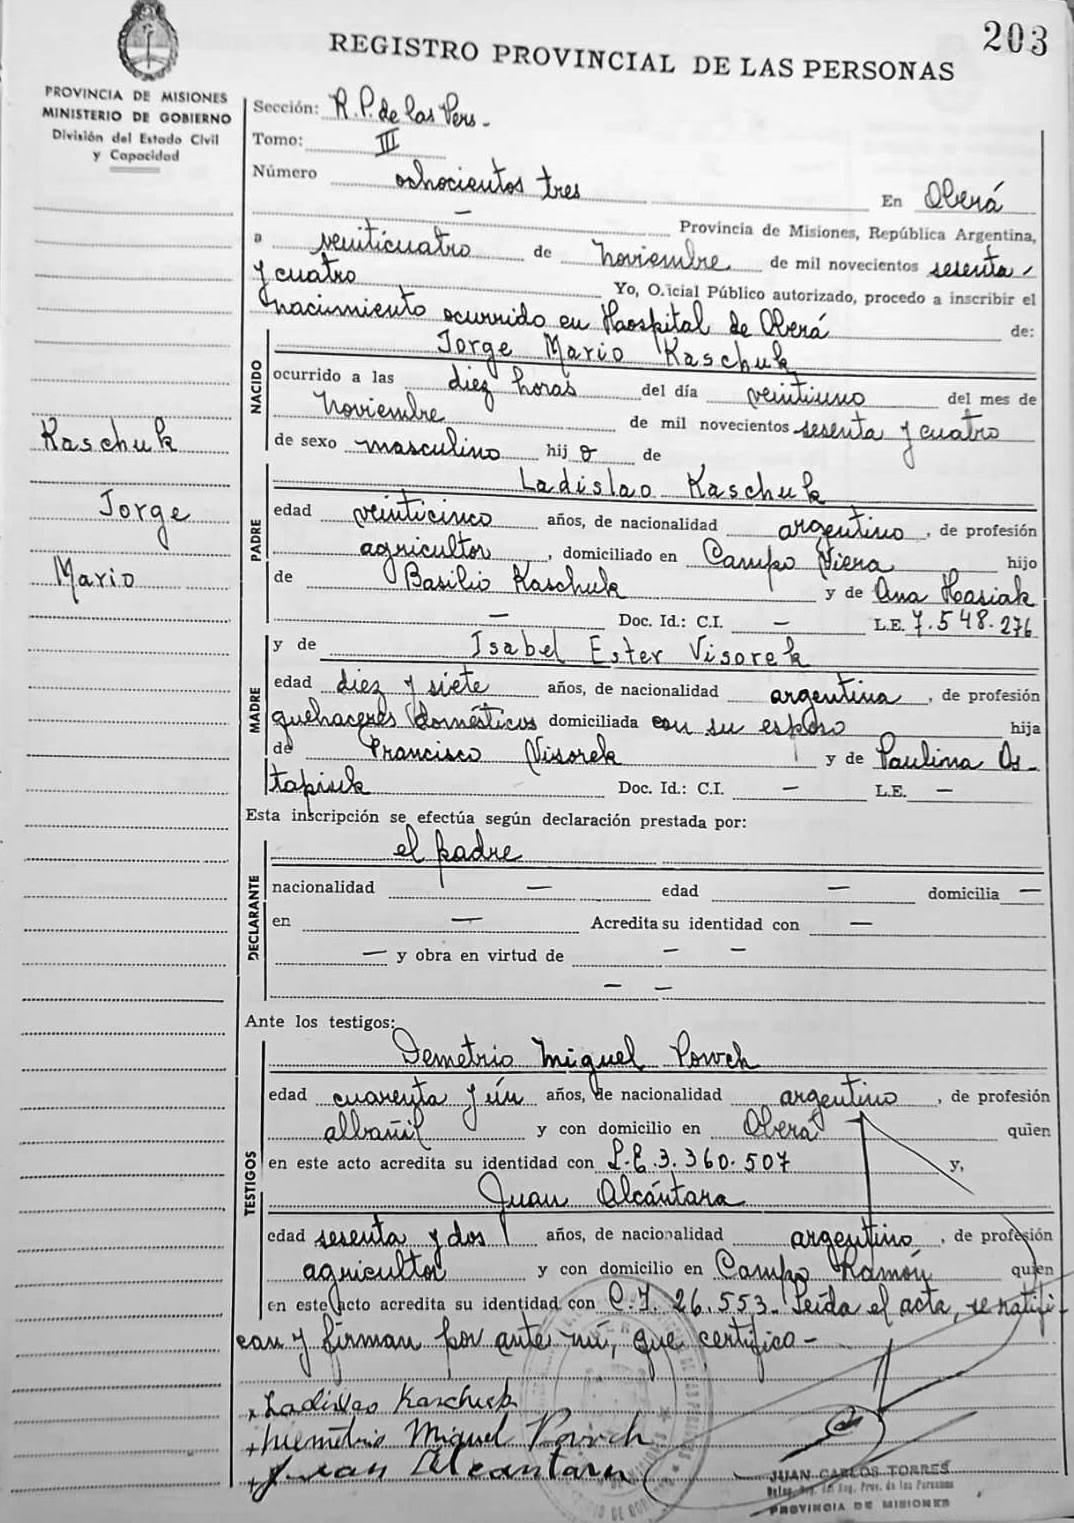 203
REGISTRO PROVINCIAL DE LAS PERSONAS
PROVINCIA DE MISIONES
MINISTERIO DE GOBIERNO
División del Estado Civil
y Capacidad
Kaschuk
Jorge
Mario
Sección: R.P. de las Pers.
Tomo: III
Número ochocientos tres En Oberá
— Provincia de Misiones, República Argentina,
a veinticuatro de Noviembre de mil novecientos sesenta
y cuatro Yo, Oficial Público autorizado, procedo a inscribir el
nacimiento ocurrido en Haospital de Oberá de:
NACIDO
Jorge Mario Kaschuk
ocurrido a las diez horas del día veintiuno del mes de
Noviembre de mil novecientos sesenta y cuatro
de sexo masculino hijo de
PADRE
Ladislao Kaschuk
edad veinticinco años, de nacionalidad argentino, de profesión
agricultor, domiciliado en Campo Viera hijo
de Basilio Kaschuk y de Ana Hasiak
— Doc. Id.: C.I. — L.E. 7.548.276
MADRE
y de Isabel Ester Visorek
edad diez y siete años, de nacionalidad argentina, de profesión
quehaceres domésticos domiciliada con su esposo hija
de Francisco Visorek y de Paulina Os-
tapiuk Doc. Id.: C.I. — L.E. —
Esta inscripción se efectúa según declaración prestada por:
DECLARANTE
el padre
nacionalidad — edad — domicilia —
en — Acredita su identidad con —
— y obra en virtud de — —
— —
Ante los testigos:
TESTIGOS
Demetrio Miguel Powch
edad cuarenta y ún años, de nacionalidad argentino, de profesión
albañil y con domicilio en Oberá quien
en este acto acredita su identidad con L.E. 3.360.507 y,
Juan Alcántara
edad sesenta y dos años, de nacionalidad argentino, de profesión
agricultor y con domicilio en Campo Ramón quien
en este acto acredita su identidad con C.I. 26.553. Leída el acta, se ratifi-
can y firman por ante mí, que certifico-
Ladislao Kaschuk
Demetrio Miguel Powch
Juan Alcantara
JUAN CARLOS TORRES
Deleg. Reg. del Reg. Prov. de las Personas
PROVINCIA DE MISIONES